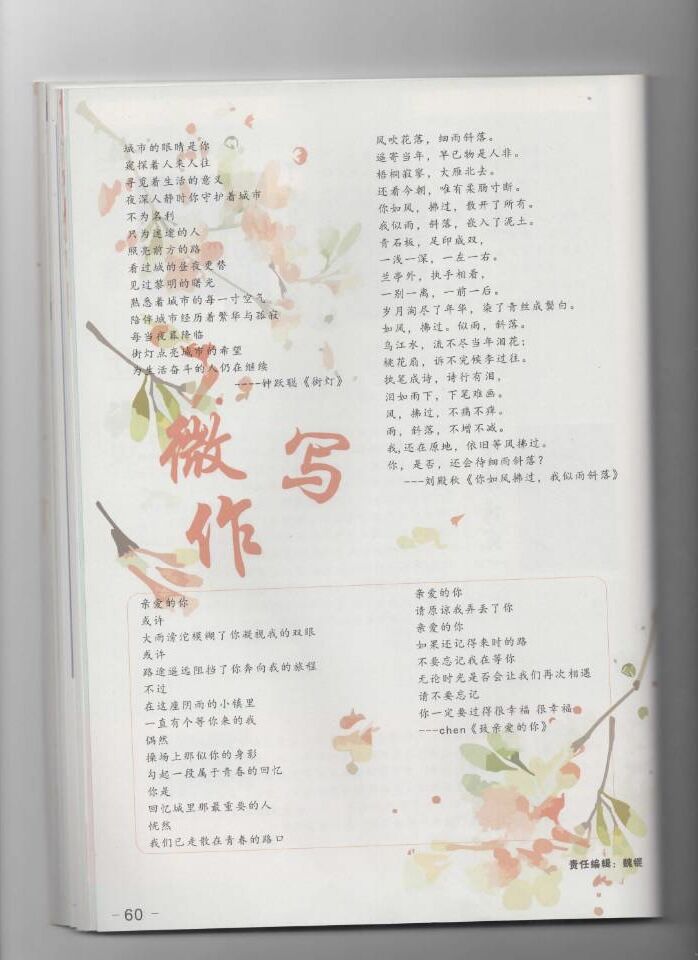 城市的眼睛是你
窥探着人来人往
寻觅着生活的意义
夜深人静时你守护着城市
不为名利
只为迷途的人
照亮前方的路
看过城的昼夜更替
见过黎明的曙光
熟悉着城市的每一寸空气
陪伴城市经历着繁华与孤寂
每当夜幕降临
街灯点亮城市的希望
为生活奋斗的人仍在继续
----钟跃聪《街灯》
风吹花落，细雨斜落。
遥寄当年，早已物是人非。
梧桐寂寥，大雁北去。
还看今朝，唯有柔肠寸断。
你如风，拂过，散开了所有。
我似雨，斜落，嵌入了泥土。
青石板，足印成双，
一浅一深，一左一右。
兰亭外，执手相看，
一别一离，一前一后。
岁月洵尽了年华，染了青丝成鬓白。
如风，拂过。似雨，斜落。
乌江水，流不尽当年泪花；
桃花扇，诉不完候李过往。
执笔成诗，诗行有泪，
泪如雨下，下笔难画。
风，拂过，不痛不痒。
雨，斜落，不增不减。
我,还在原地，依旧等风拂过。
你，是否，还会待细雨斜落？
---刘殿秋《你如风拂过，我似雨斜落》
微写作
亲爱的你
或许
大雨滂沱模糊了你凝视我的双眼
或许
路途遥远阻挡了你奔向我的旅程
不过
在这座阴雨的小镇里
一直有个等你来的我
偶然
操场上那似你的身影
勾起一段属于青春的回忆
你是
回忆城里那最重要的人
恍然
我们已走散在青春的路口
亲爱的你
请原谅我弄丢了你
亲爱的你
如果还记得来时的路
不要忘记我在等你
无论时光是否会让我们再次相遇
请不要忘记
你一定要过得很幸福 很幸福
---chen《致亲爱的你》
责任编辑：魏锟
- 60 -